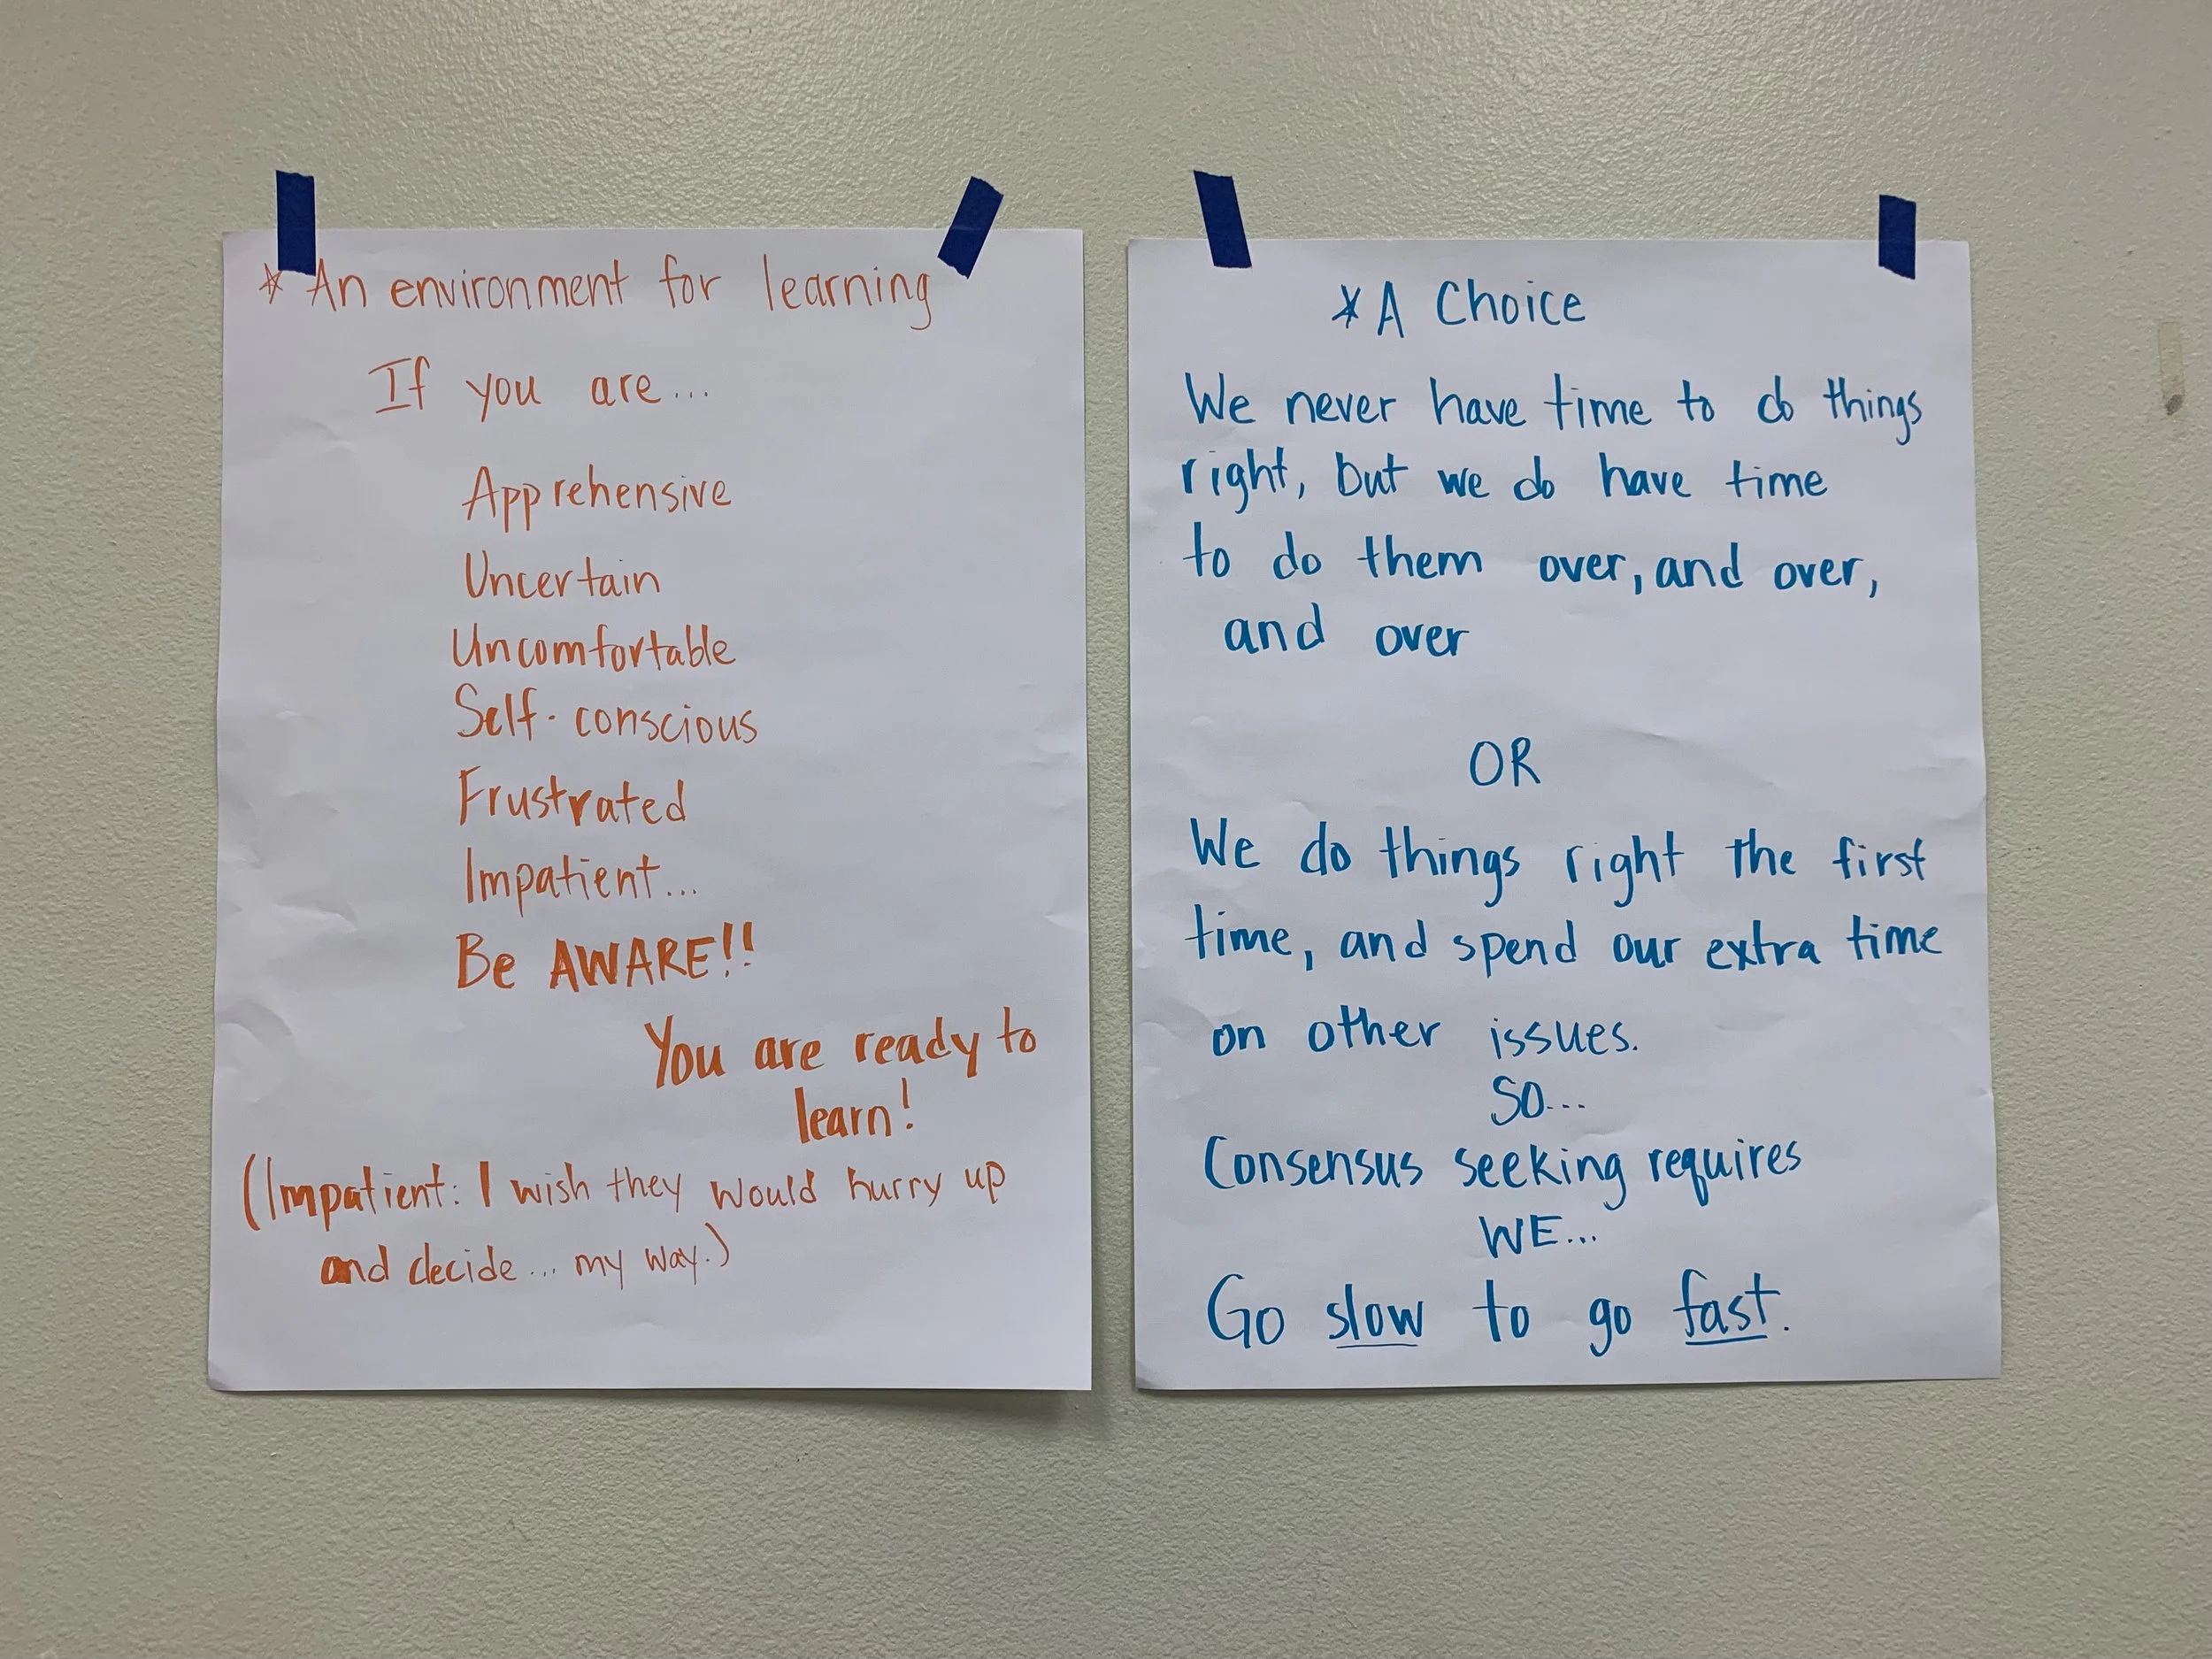 * An environment for learning
If you are...
Apprehensive
Uncertain
Uncomfortable
Self-conscious
Frustrated
Impatient...
Be AWARE!!
You are ready to
learn!
(Impatient: I wish they would hurry up
and decide... my way.)
* A Choice
We never have time to do things
right, but we do have time
to do them over, and over,
and over
OR
We do things right the first
time, and spend our extra time
on other issues.
SO...
Consensus seeking requires
WE...
Go slow to go fast.